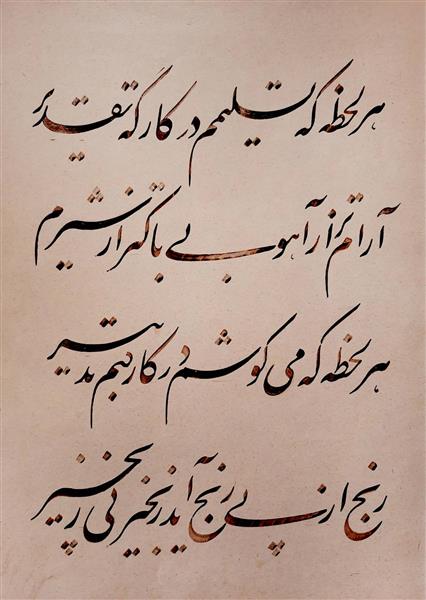 هر لحظه که تسلیمم در کارگه تقدیر
آرام تر از آهو بی باک تر از شیرم
هر لحظه که می کوشم در کار کنم تدبیر
رنج از پی رنج آید زنجیر پی زنجیر